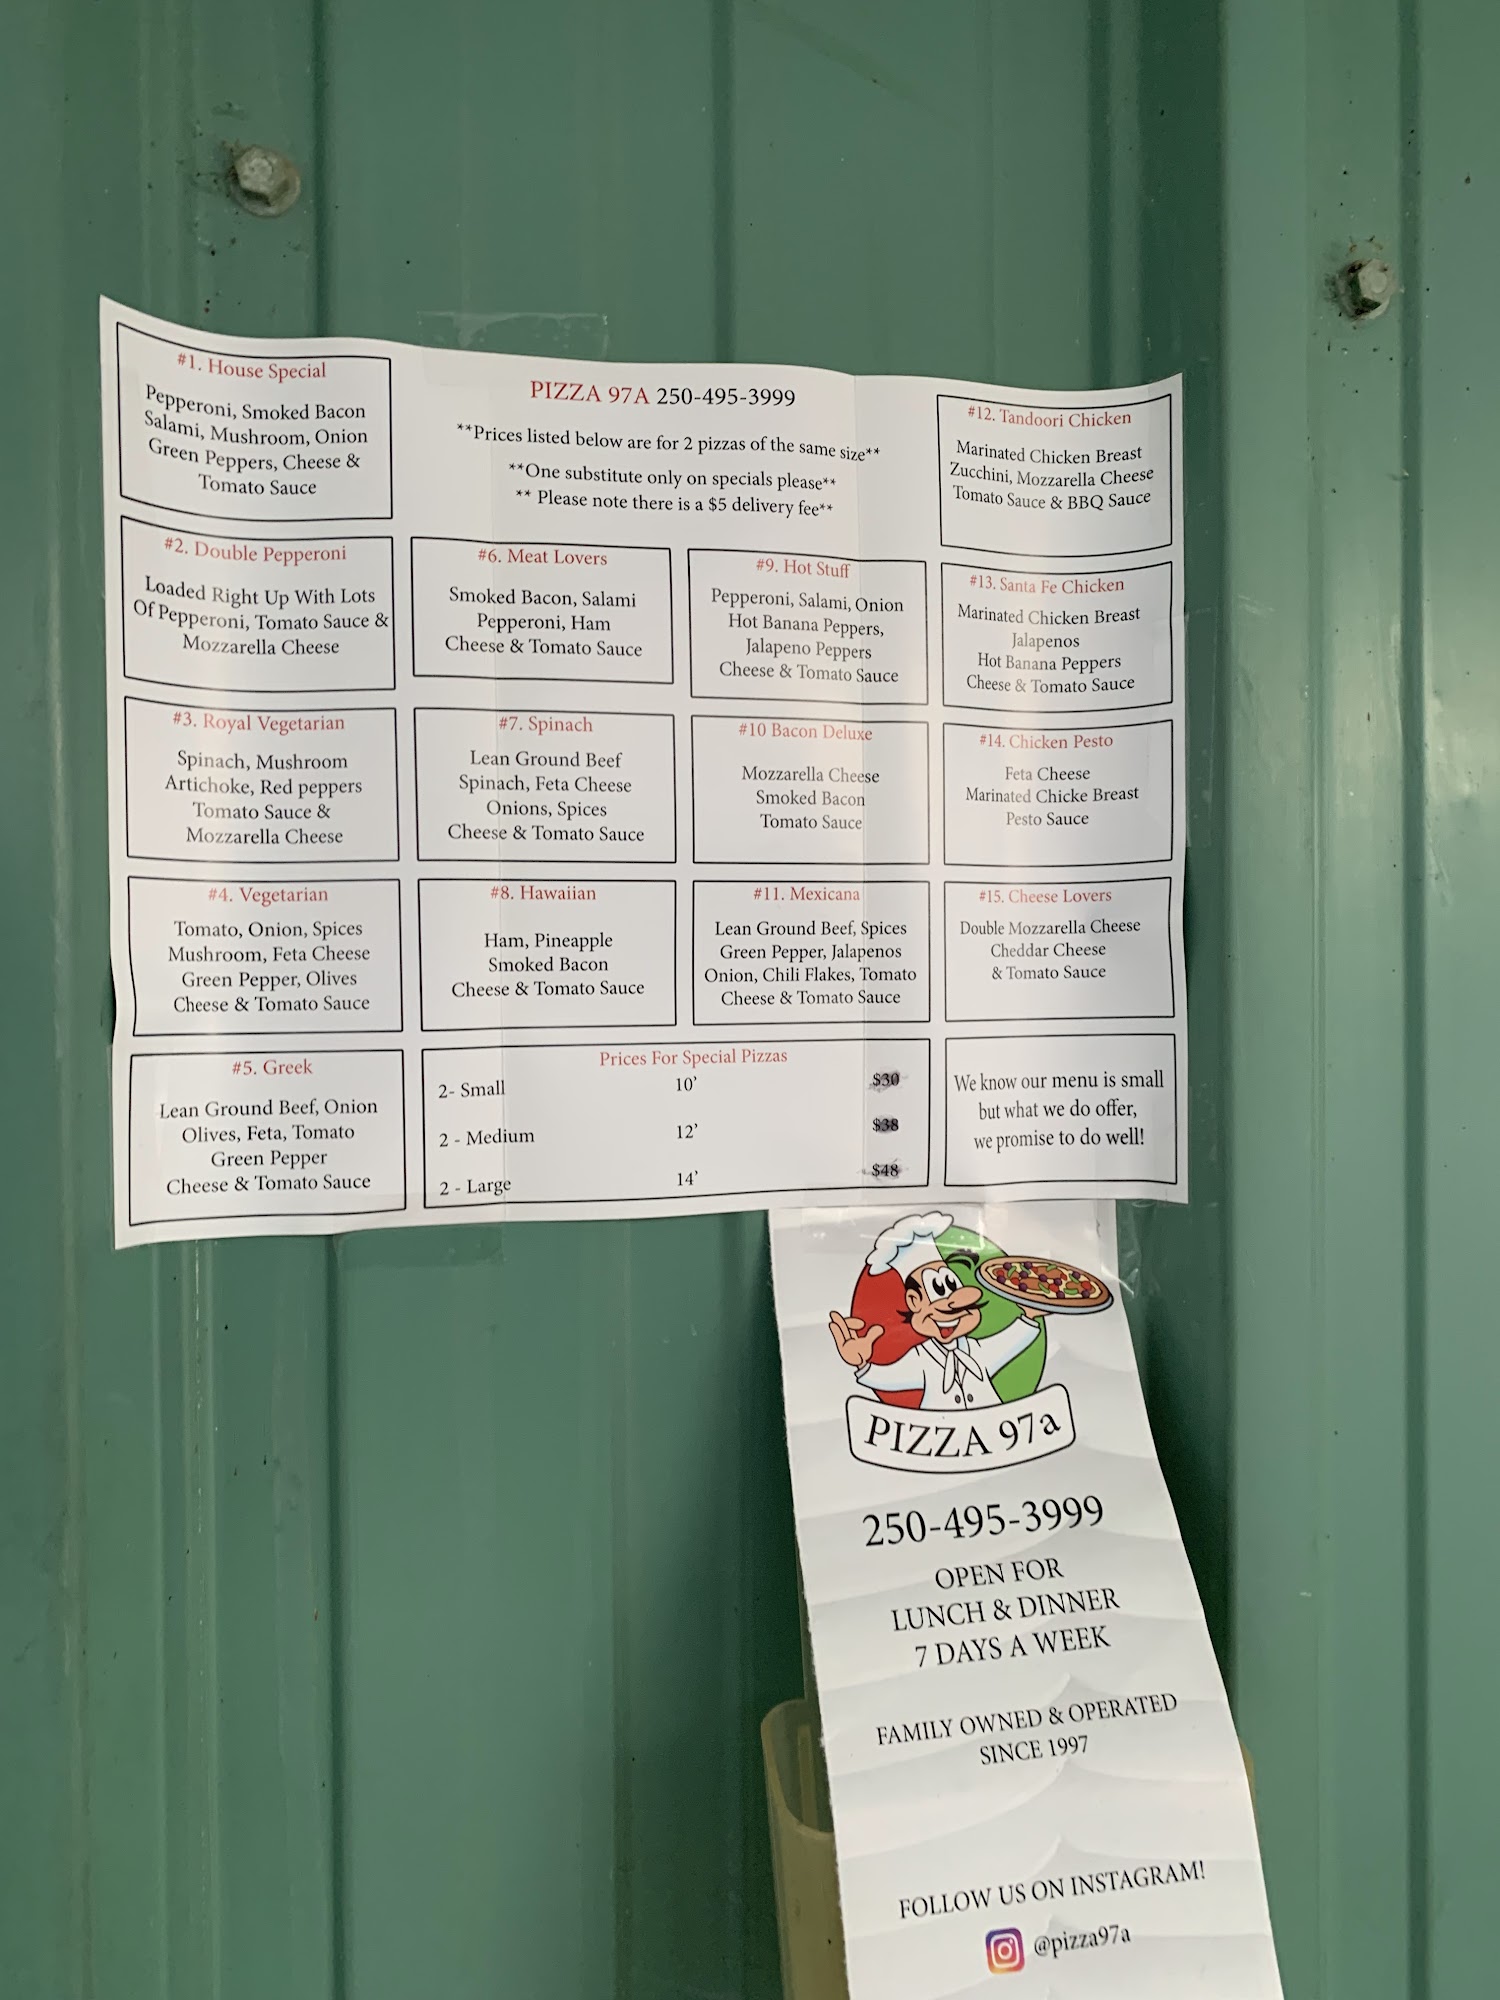 #1. House Special
Pepperoni, Smoked Bacon
Salami, Mushroom, Onion
Green Peppers, Cheese &
Tomato Sauce
#2. Double Pepperoni
Loaded Right Up With Lots
Of Pepperoni, Tomato Sauce &
Mozzarella Cheese
#3. Royal Vegetarian
Spinach, Mushroom
Artichoke, Red peppers
Tomato Sauce &
Mozzarella Cheese
#4. Vegetarian
Tomato, Onion, Spices
Mushroom, Feta Cheese
Green Pepper, Olives
Cheese & Tomato Sauce
#5. Greek
Lean Ground Beef, Onion
Olives, Feta, Tomato
Green Pepper
Cheese & Tomato Sauce
PIZZA 97A 250-495-3999
**Prices listed below are for 2 pizzas of the same size**
**One substitute only on specials please**
** Please note there is a $5 delivery fee**
#6. Meat Lovers
Smoked Bacon, Salami
Pepperoni, Ham
Cheese & Tomato Sauce
#7. Spinach
Lean Ground Beef
Spinach, Feta Cheese
Onions, Spices
Cheese & Tomato Sauce
#8. Hawaiian
Ham, Pineapple
Smoked Bacon
Cheese & Tomato Sauce
#9. Hot Stuff
Pepperoni, Salami, Onion
Hot Banana Peppers,
Jalapeno Peppers
Cheese & Tomato Sauce
#10 Bacon Deluxe
Mozzarella Cheese
Smoked Bacon
Tomato Sauce
#11. Mexicana
Lean Ground Beef, Spices
Green Pepper, Jalapenos
Onion, Chili Flakes, Tomato
Cheese & Tomato Sauce
Prices For Special Pizzas
2- Small 10' $30
2 - Medium 12' $38
2 - Large 14' $48
#12. Tandoori Chicken
Marinated Chicken Breast
Zucchini, Mozzarella Cheese
Tomato Sauce & BBQ Sauce
#13. Santa Fe Chicken
Marinated Chicken Breast
Jalapenos
Hot Banana Peppers
Cheese & Tomato Sauce
#14. Chicken Pesto
Feta Cheese
Marinated Chicke Breast
Pesto Sauce
#15. Cheese Lovers
Double Mozzarella Cheese
Cheddar Cheese
& Tomato Sauce
We know our menu is small
but what we do offer,
we promise to do well!
PIZZA 97a
250-495-3999
OPEN FOR
LUNCH & DINNER
7 DAYS A WEEK
FAMILY OWNED & OPERATED
SINCE 1997
FOLLOW US ON INSTAGRAM!
@pizza97a